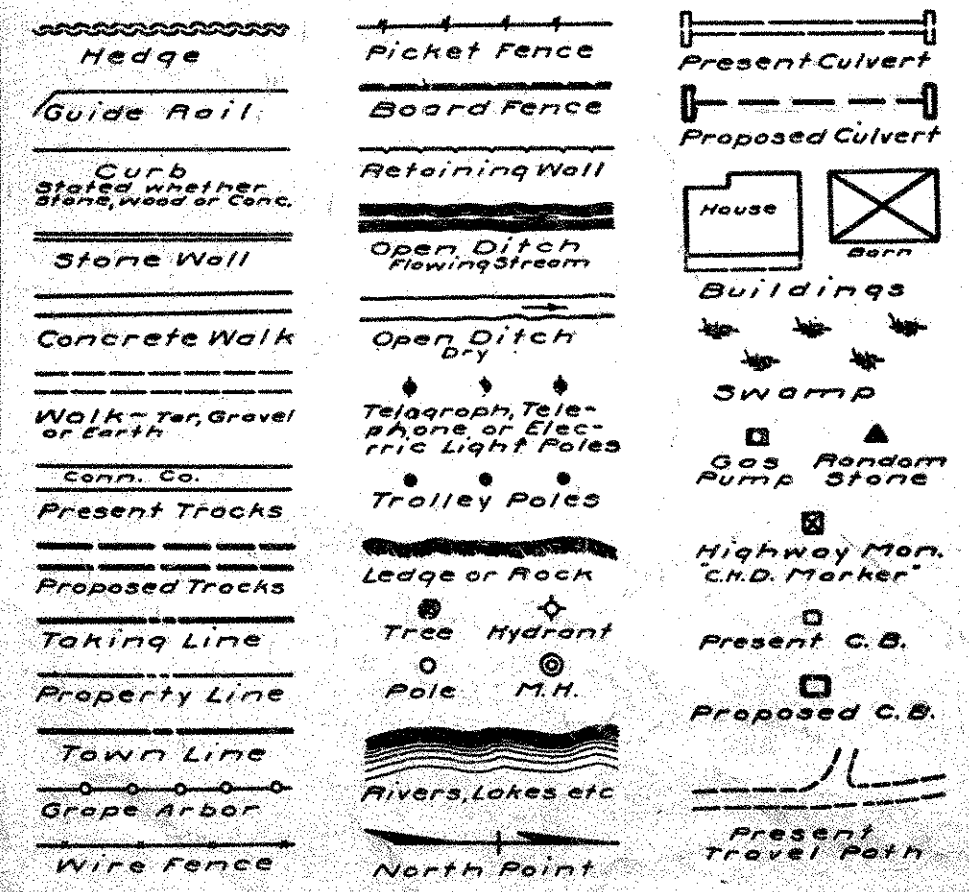 Hedge
Guide Rail
Curb
Stated whether
Stone, wood or Conc.
Stone Wall
Concrete Walk
Walk - Tar, Gravel
or Earth
Conn. Co.
Present Tracks
Proposed Tracks
Taking Line
Property Line
Town Line
Grape Arbor
Wire Fence
Picket Fence
Board Fence
Retaining Wall
Open Ditch
Flowing Stream
Open Ditch
Dry
Telegraph, Tele-
phone or Elec-
tric Light Poles
Trolley Poles
Ledge or Rock
Tree Hydrant
Pole M.H.
Rivers, Lakes etc
North Point
Present Culvert
Proposed Culvert
House
Barn
Buildings
Swamp
Gas Random
Pump Stone
Highway Mon.
"C.H.D. Marker"
Present C.B.
Proposed C.B.
Present
Travel Path